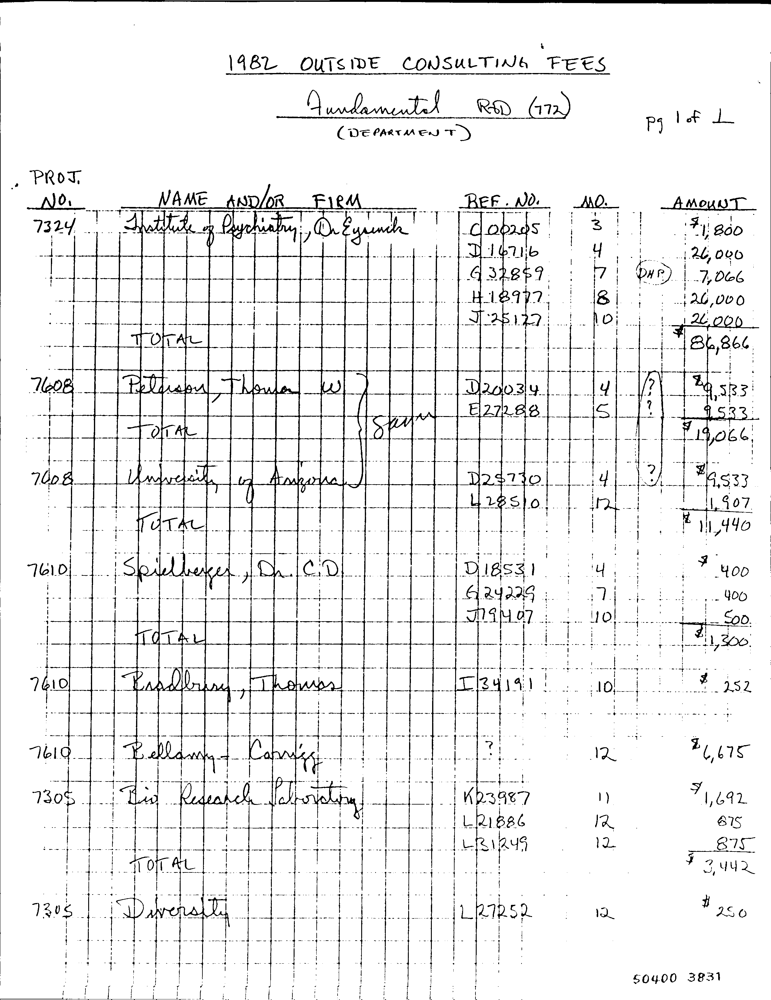 1982 OUTSIDE CONSULTING FEES
Fundamental R&D (772)
(DEPARTMENT)
pg 1 of 1
PROJ.
NO. NAME AND/OR FIRM REF. NO. MO. AMOUNT
7324 Institute of Psychiatry, Dr Eysenck C00205 3 $1,800
D16716 4 26,000
G32859 7 (DHP) 7,066
H18977 8 26,000
J25127 10 26,000
TOTAL $86,866
7608 Peterson, Thomas W D20034 4 ? $9,533
E27288 5 ? 9533
TOTAL Same $19,066
7608 University of Arizona D25730 4 ? $9,533
L28510 12 1,907
TOTAL $11,440
7610 Spielberger, Dr. C.D. D18531 4 $400
G24229 7 400
J79407 10 500
TOTAL $1,300
7610 Bradbury, Thomas I34191 10 $252
7610 Bellamy - ? 12 $6,675
7305 Bio Research Laboratory K23987 11 $1,692
L21886 12 875
L31249 12 875
TOTAL $3,442
7305 Diversity L27252 12 $250
50400 3831